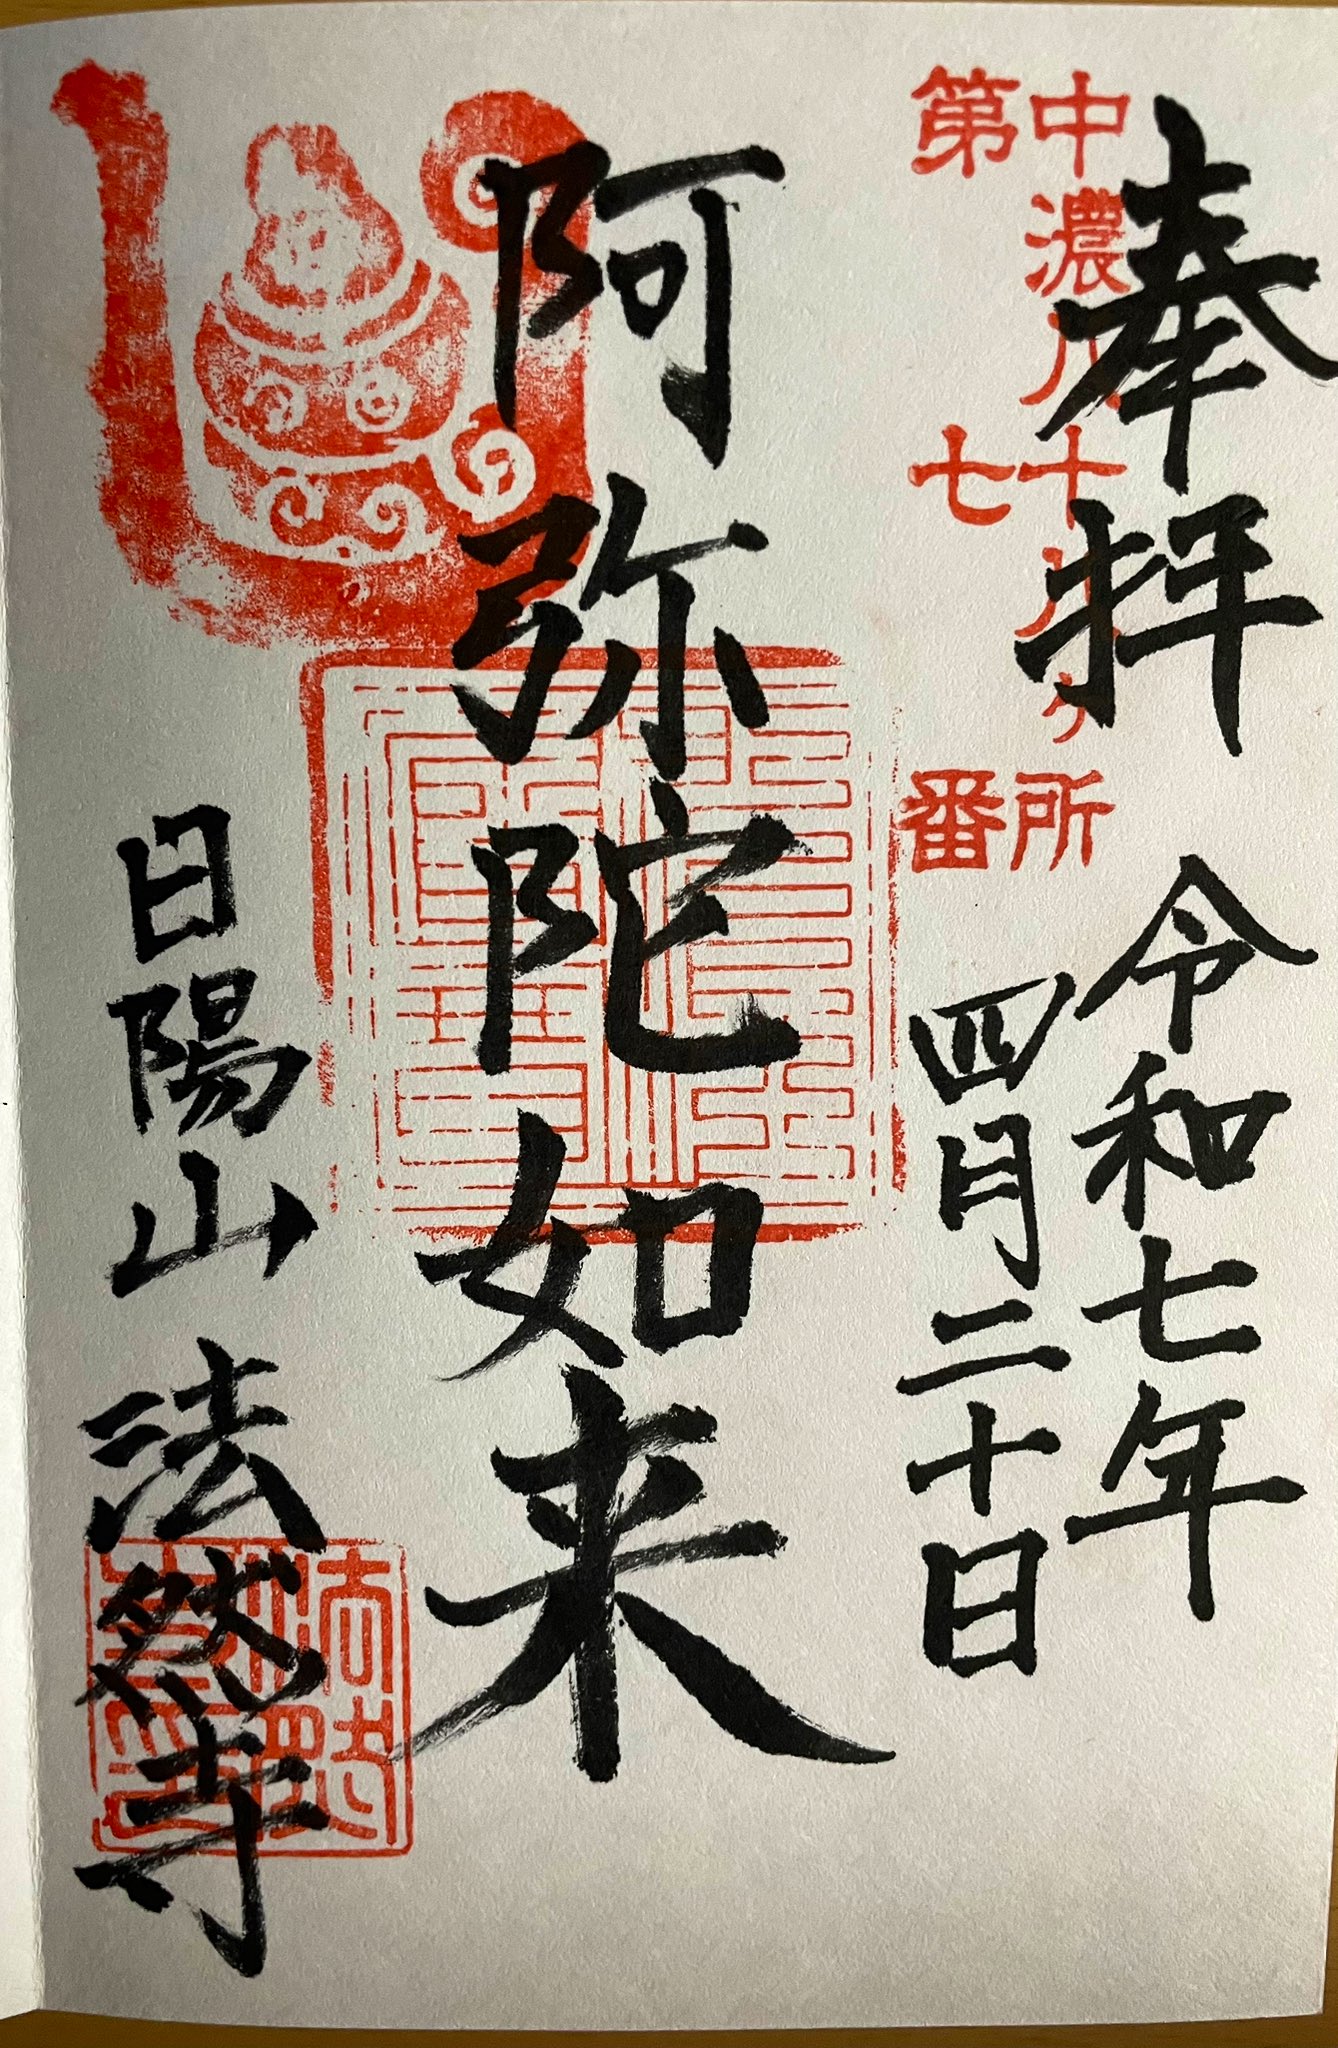 奉拝
中濃八十八ヶ所
第七番
令和七年
四月二十日
阿弥陀如来
日陽山 法然寺